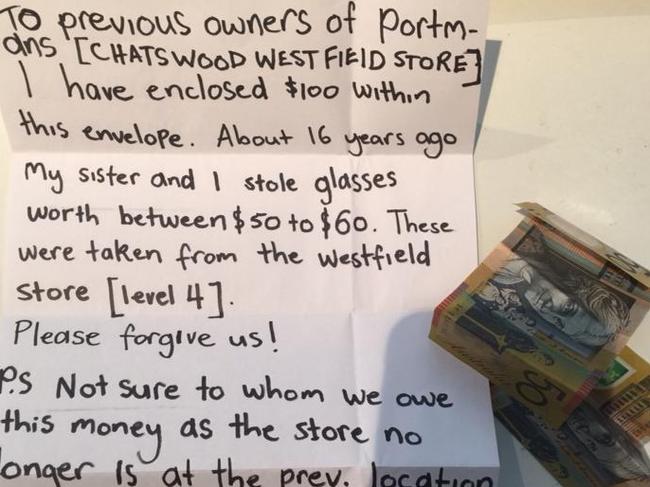 To previous owners of Portm-
ans [CHATSWOOD WESTFIELD STORE]
I have enclosed $100 within
this envelope. About 16 years ago
My sister and I stole glasses
worth between $50 to $60. These
were taken from the westfield
store [level 4].
Please forgive us!
P.S Not sure to whom we owe
this money as the store no
longer is at the prev. location
50